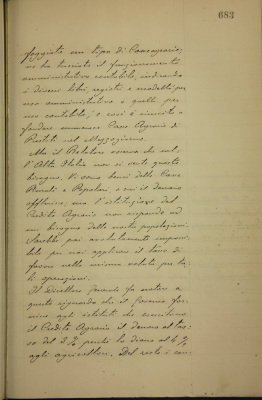 683
foggiato un tipo di Cassa agraria,
ne ha tracciato il funzionamento
amministrativo contabile, indicando
i diversi libri, registri e modelli, per
uso amministrativo e quelli per
uso contabile; e così è riuscito a
fondare numerose Casse Agrarie di
Prestiti nel Mezzogiorno.
Ma il Relatore osserva che nel-
l'Alta Italia non si sente questo
bisogno. Vi sono bensì delle Casse
Rurali e Popolari, e vi il danaro
affluisce; ma l'istituzione del
Credito Agrario non risponde ad
un bisogno delle nostre popolazioni.
Sarebbe poi assolutamente impossi-
bile per noi applicare il tasso di
favore nella misura voluta per ta-
li operazioni.
Il Direttore Generale fa notare a
questo riguardo che il Governo for-
nisce agli istituti che esercitano
il Credito Agrario il danaro al tas-
so del 3% perchè lo diano al 4%
agli agricoltori. Del resto i con-